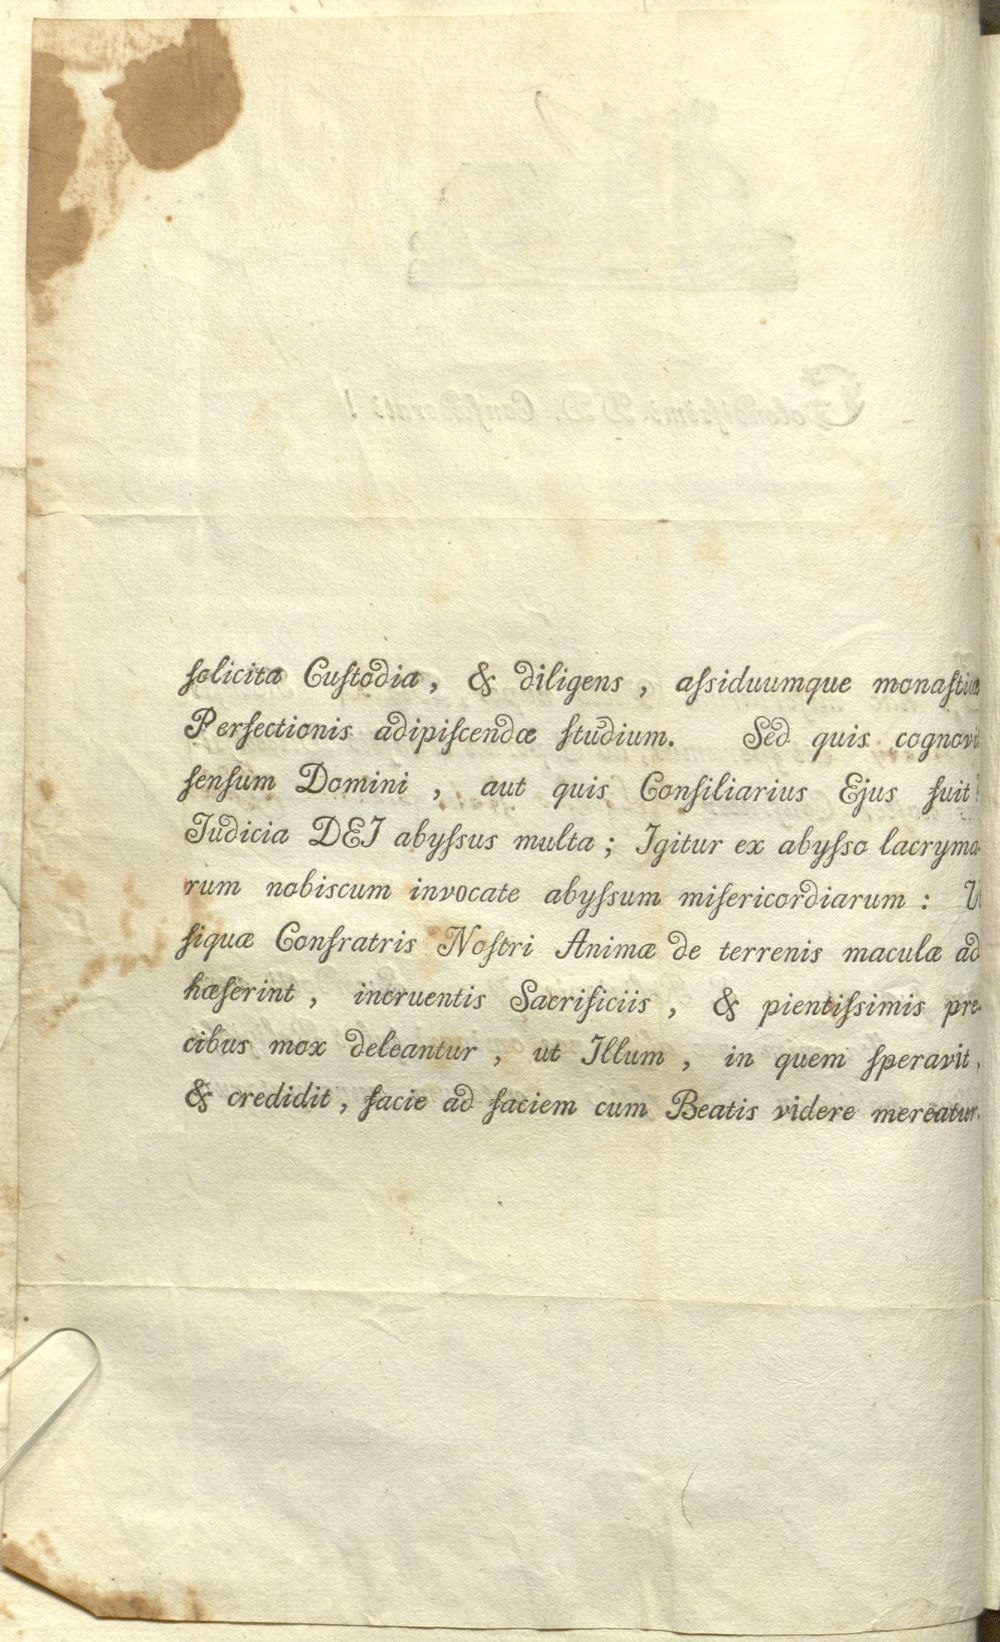 solicita Custodia, & diligens, assiduumque monasticæ
Perfectionis adipiscendæ studium. Sed quis cognovit
sensum Domini, aut quis Consiliarius Ejus fuit?
Judicia DEI abyssus multa; Igitur ex abysso lacryma-
rum nobiscum invocate abyssum misericordiarum: Ut
siquæ Confratris Nostri Animæ de terrenis maculæ ad
hæserint, incruentis Sacrificiis, & pientissimis pre-
cibus mox deleantur, ut Illum, in quem speravit,
& credidit, facie ad faciem cum Beatis videre mereatur.